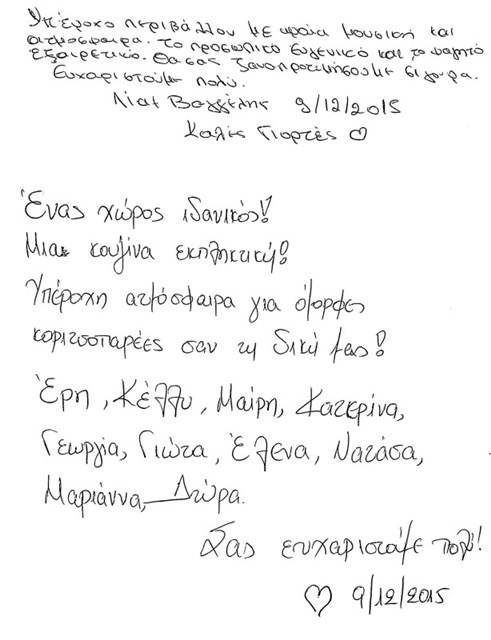 Υπέροχο περιβάλλον με ωραία μουσική και
ατμόσφαιρα. Το προσωπικό ευγενικό και το φαγητό
εξαιρετικό. Θα σας ξαναπροτιμήσουμε σίγουρα.
Ευχαριστούμε πολύ.
Λίατ Βαγγέλης 9/12/2015
Καλές Γιορτές ♡
Ένας χώρος ιδανικός!
Μια κουζίνα εκπληκτική!
Υπέροχη ατμόσφαιρα για όμορφες
κοριτσοπαρέες σαν τη δική μας!
Έρη, Κέλλυ, Μαίρη, Κατερίνα,
Γεωργία, Γιώτα, Έλενα, Νατάσα,
Μαριάννα, Δώρα.
Σας ευχαριστάμε πολύ!
♡ 9/12/2015